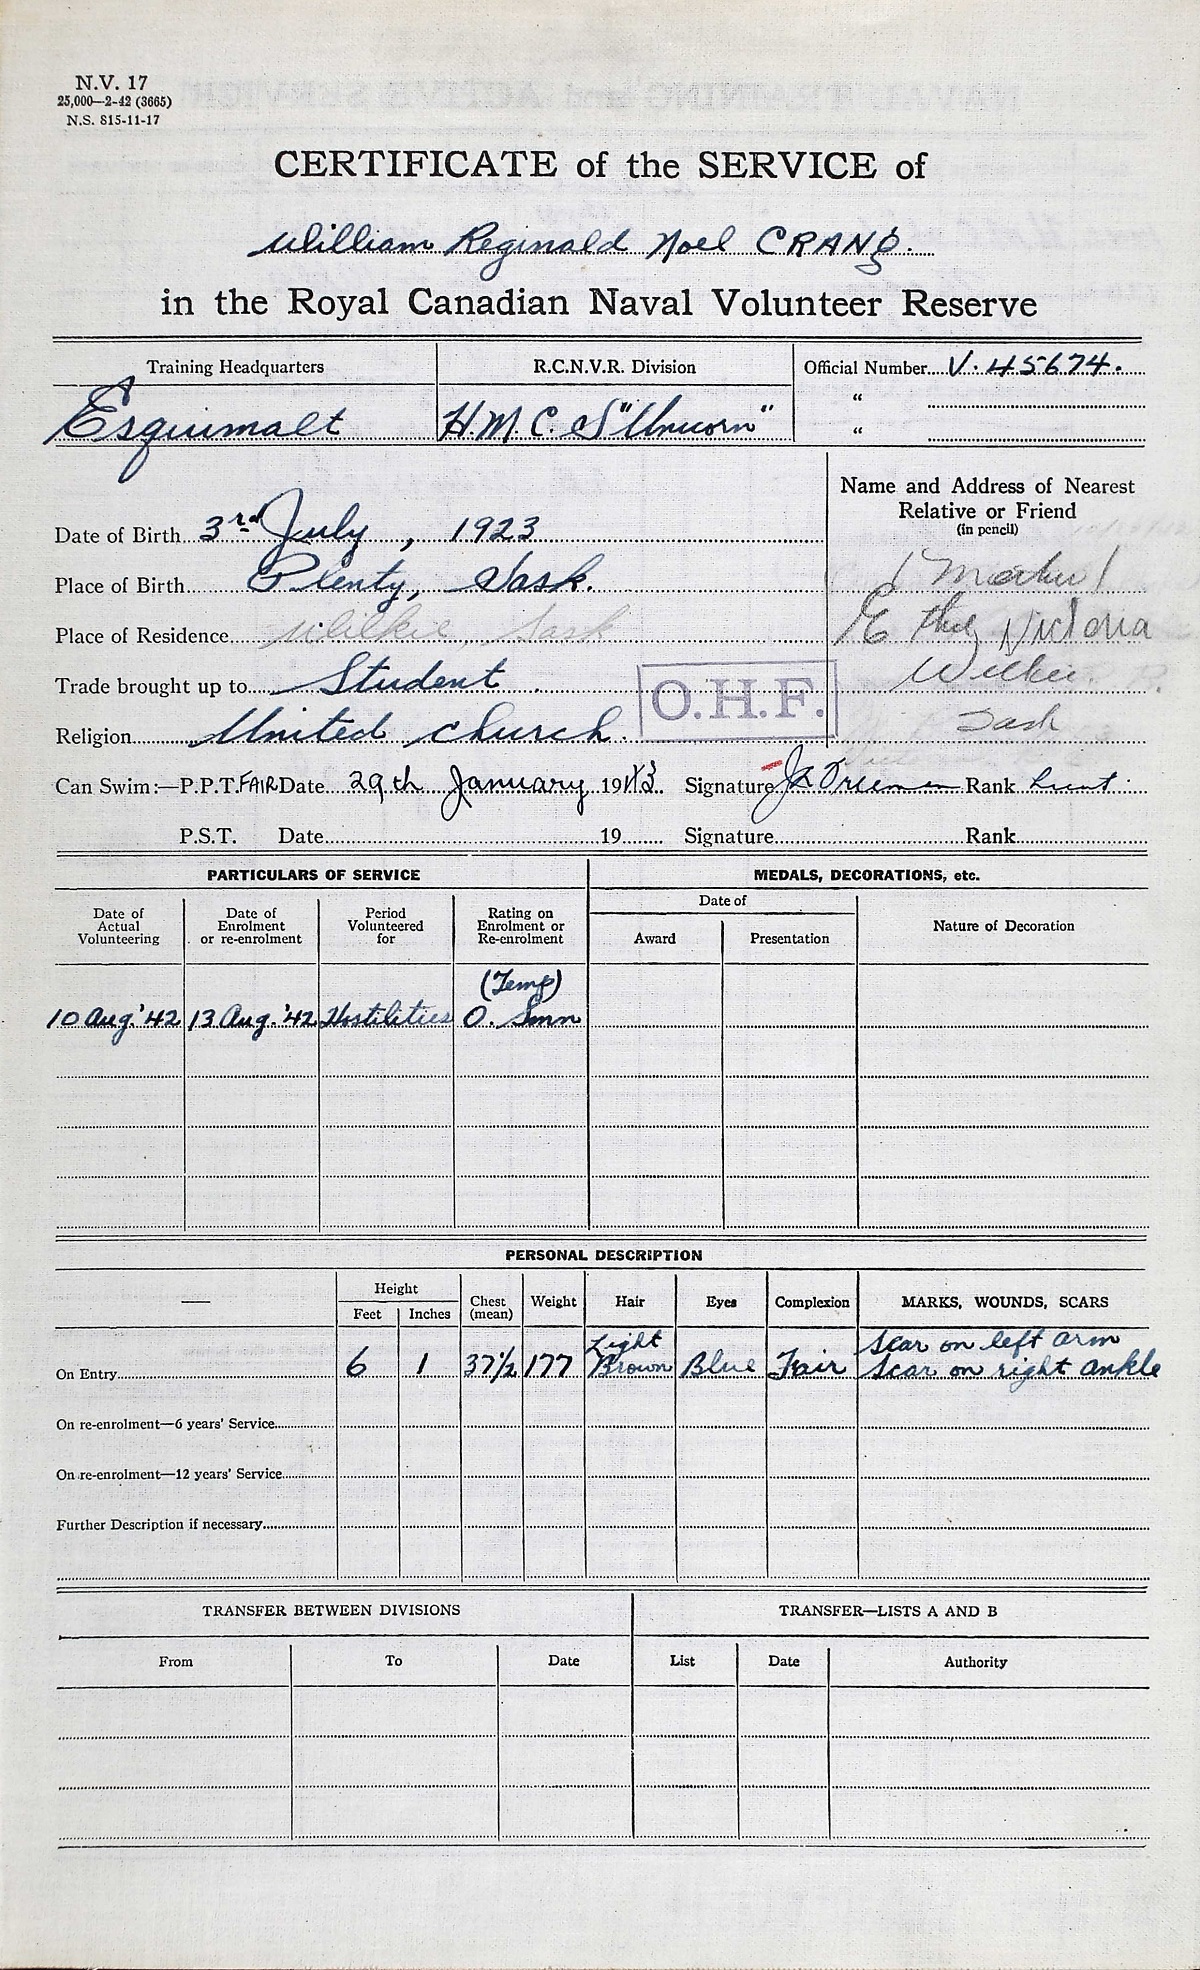 N.V. 17
25,000—2-42 (3665)
N.S. 815-11-17
CERTIFICATE of the SERVICE of
William Reginald Noel CRANG.
in the Royal Canadian Naval Volunteer Reserve
Training Headquarters R.C.N.V.R. Division Official Number V. 45674.
Esquimalt H.M.C.S "Unicorn" "
"
Name and Address of Nearest
Relative or Friend
(in pencil)
Date of Birth 3rd July, 1923
(Mother)
Place of Birth Plenty, Sask.
Ethel Victoria
Place of Residence Wilkie, Sask
Wilkie
Trade brought up to Student
O.H.F.
Sask
Religion United Church.
Can Swim:—P.P.T. FAIR Date 29th January 1943 Signature Rank Lieut.
P.S.T. Date 19 Signature Rank
PARTICULARS OF SERVICE MEDALS, DECORATIONS, etc.
Date of Actual Volunteering Date of Enrolment or re-enrolment Period Volunteered for Rating on Enrolment or Re-enrolment Date of Nature of Decoration
Award Presentation
(Temp)
10 Aug. '42 13 Aug. '42 Hostilities O. Smn
PERSONAL DESCRIPTION
— Height Chest (mean) Weight Hair Eyes Complexion MARKS, WOUNDS, SCARS
Feet Inches
Light Scar on left arm
On Entry 6 1 37½ 177 Brown Blue Fair Scar on right ankle
On re-enrolment—6 years' Service
On re-enrolment—12 years' Service
Further Description if necessary
TRANSFER BETWEEN DIVISIONS TRANSFER—LISTS A AND B
From To Date List Date Authority